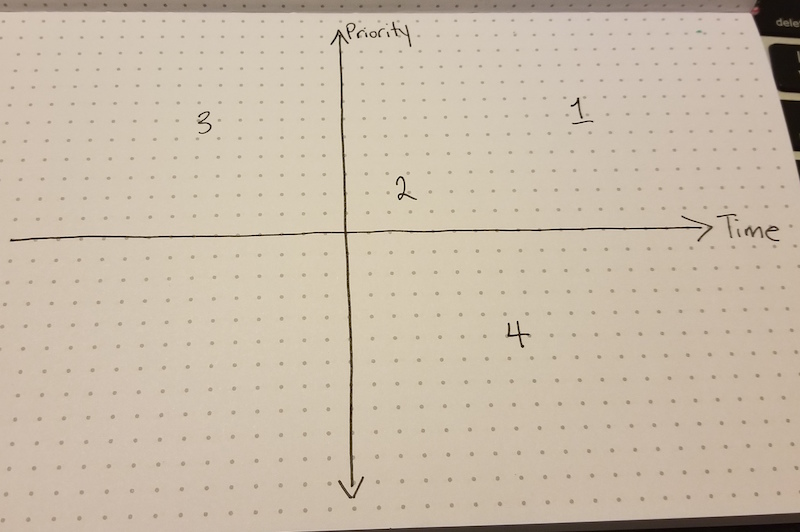 Priority
3
1
2
Time
4
dele